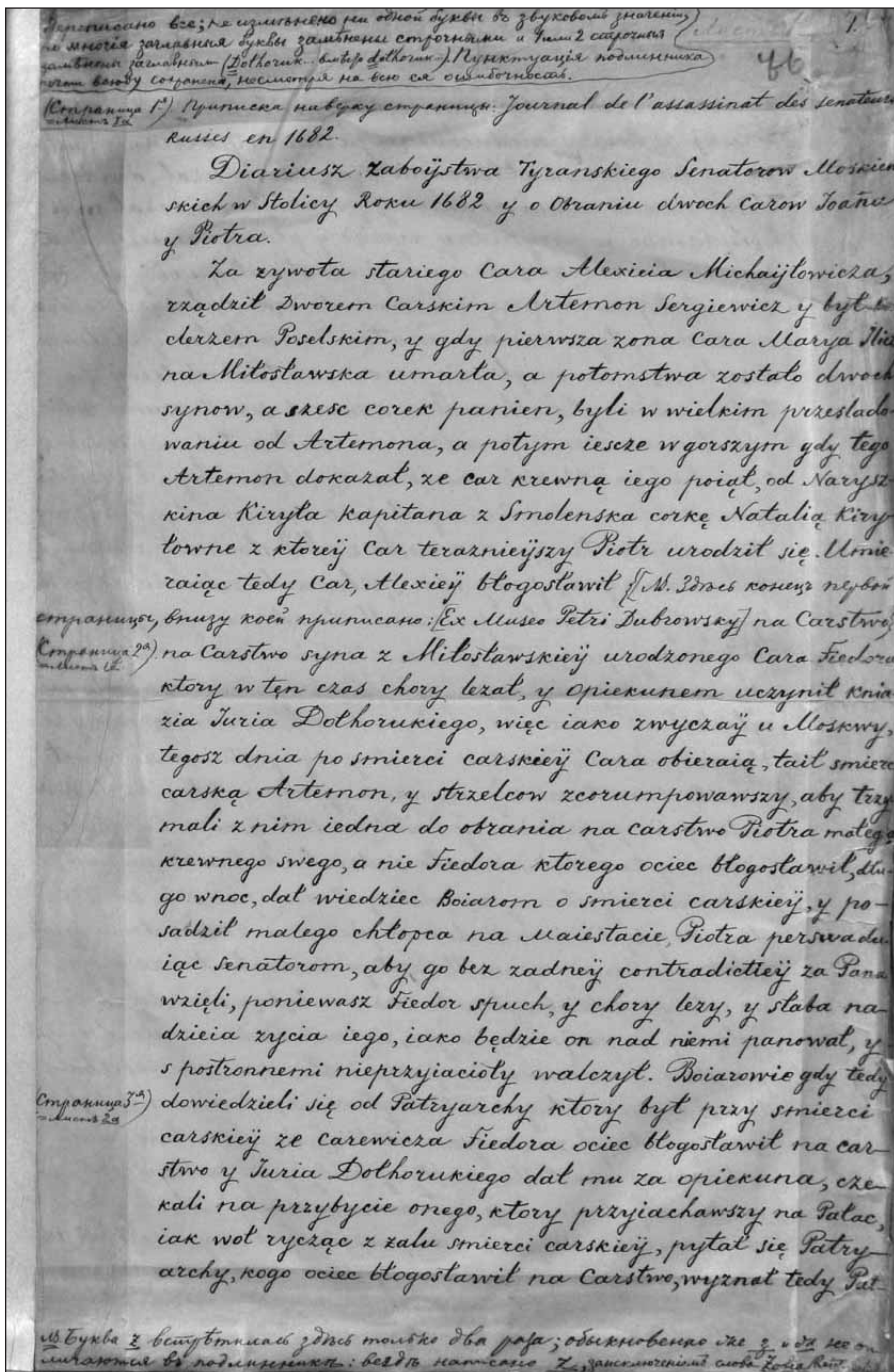 Переписано все; не измѣнено ни одной буквы въ звуковомъ значении;
многія заглавныя буквы замѣнены строчными и 1 или 2 строчныя
замѣнены заглавными (Dothoruk. вмѣсто dothoruk.) Пунктуація подлинника
почти всюду сохранена, несмотря на всю ея ошибочность.
1.
(Страница 1ª) Приписка наверху страницы: Journal de l'assassinat des senateurs
=Листъ 1а
Russes en 1682.
Diariusz zaboÿstwa Tyranskiego Senatorow Moskiew
skich w Stolicy Roku 1682 y o Obraniu dwoch Carow Joañа
y Piotra.
Za zywota stariego Cara Alexieia Michaiÿłowicza,
rządził Dworem Carskim Artemon Sergiewicz y był
clerzem Poselskim, y gdy pierwsza zona Cara Marya Ilic
na Miłosławska umarła, a potomstwa zostało dwoch
synow, a szesc corek panien, byli w wielkim przeslado-
waniu od Artemona, a potym iescze w gorszym gdy tego
Artemon dokazał, ze car krewną iego poiął, od Narysz-
kina Kiryła kapitana z Smolenska corkę Natalią Kiry-
łowne z ktoreÿ Car teraznieÿszy Piotr urodził się. Umie-
raiąc tedy Car, Alexieÿ błogosławił [NB. Здѣсь конецъ первой
страницы, внизу коей приписано: [Ex Museo Petri Dubrowsky] na Carstwo]
(Страница 2ª) na Carstwo syna z Miłosławskieÿ urodzonego Cara Fiedora
ktory w ten czas chory lezał, y opiekunem uczynił knia
zia Juria Dołhorukiego, więc iako zwyczaÿ u Moskwy,
tegosz dnia po smierci carskieÿ Cara obieraią, taił smierc
carską Artemon, y strzelcow zcorumpowawszy, aby trzy
mali z nim iedna do obrania na carstwo Piotra małego
krewnego swego, a nie Fiedora ktorego ociec błogosławił, dłu-
go wnoc, dał wiedziec Boiarom o smierci carskieÿ, y po-
sadził małego chłopca na Maiestacie, Piotra perswadu-
iąc senatorom, aby go bez zadneÿ contradictieÿ za Pana
wzięli, poniewasz Fiedor spuch, y chory lezy, y słaba na-
dzieia zycia iego, iako będzie on nad niemi panował, y
s postronnemi nieprzyiacioły walczył. Boiarowie gdy tedy
(Страница 3ª) dowiedzieli się od Patryarchy ktory był przy smierci
=Листъ 2а
carskieÿ ze carewicza Fiedora ociec błogosławił na car-
stwo y Juria Dołhorukiego dał mu za opiekuna, cze-
kali na przybycie onego, ktory przyiachawszy na Pałac,
iak woł rycząc z zalu smierci carskieÿ, pytał się Patry-
archy, kogo ociec błogosławił na Carstwo, wyznał tedy Pat-
NB Буква z встрѣтилась здѣсь только два раза; обыкновенно же
въ подлинникѣ: вездѣ написано z,